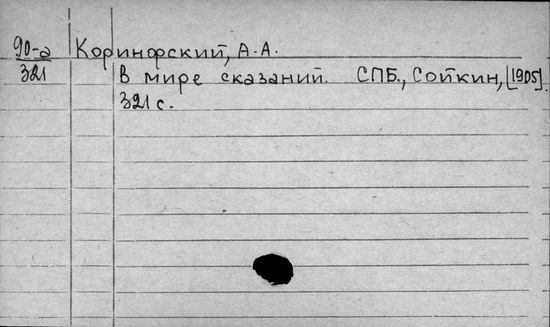 90-а Коринфский, А.А.
321 В мире сказаний. СПБ., Сойкин, [1905].
321 с.